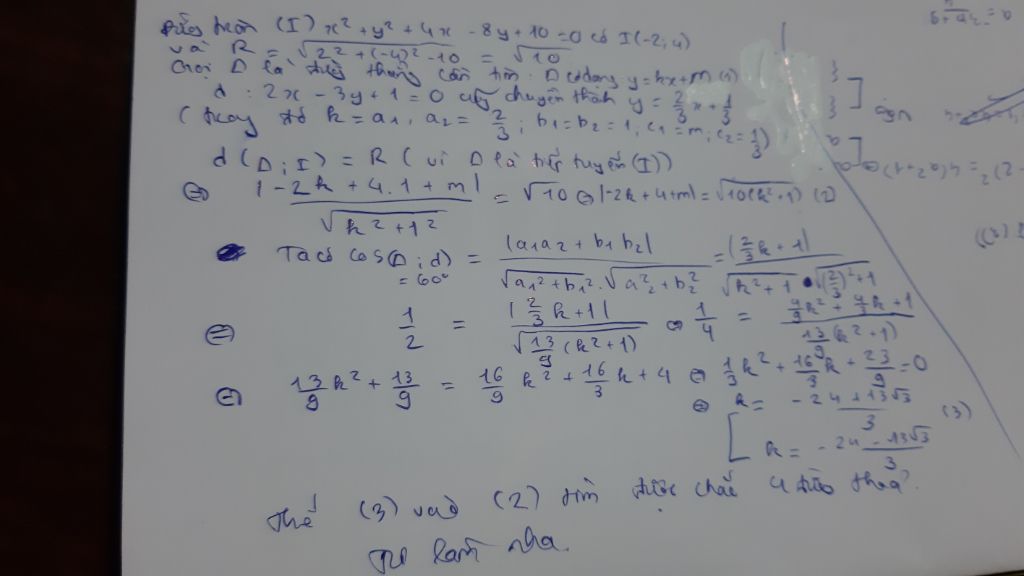 Đường tròn (I) x² + y² + 4x - 8y + 10 = 0 có I(-2; 4)
và R = √(2² + (-4)² - 10) = √10
Gọi D là đường thẳng cần tìm: D có dạng y = kx + m (1)
d : 2x - 3y + 1 = 0 chuyển thành y = 2/3 x + 1/3
( k = a₁, a₂ = 2/3; b₁ = b₂ = 1, c₁ = m; c₂ = 1/3)
d(D; I) = R (vì D là tiếp tuyến (I))
⇔ |-2k + 4.1 + m| / √(k² + 1²) = √10 ⇔ |-2k + 4 + m| = √10(k² + 1) (2)
Ta có cos(D; d) = |a₁a₂ + b₁b₂| / √(a₁² + b₁²) . √(a₂² + b₂²) = |2/3 k + 1| / √(k² + 1) • √((2/3)² + 1)
= 60°
⇔ 1/2 = |2/3 k + 1| / √(13/9 (k² + 1)) ⇔ 1/4 = (4/9 k² + 4/3 k + 1) / (13/9 (k² + 1))
⇔ 13/9 k² + 13/9 = 16/9 k² + 16/3 k + 4 ⇔ 1/3 k² + 16/3 k + 23/9 = 0
⇔ [ k = (-24 + 13√3)/3 (3)
k = (-24 - 13√3)/3
Thế (3) vào (2) tìm được chắc 4 đường thoả.
Tự làm nha.